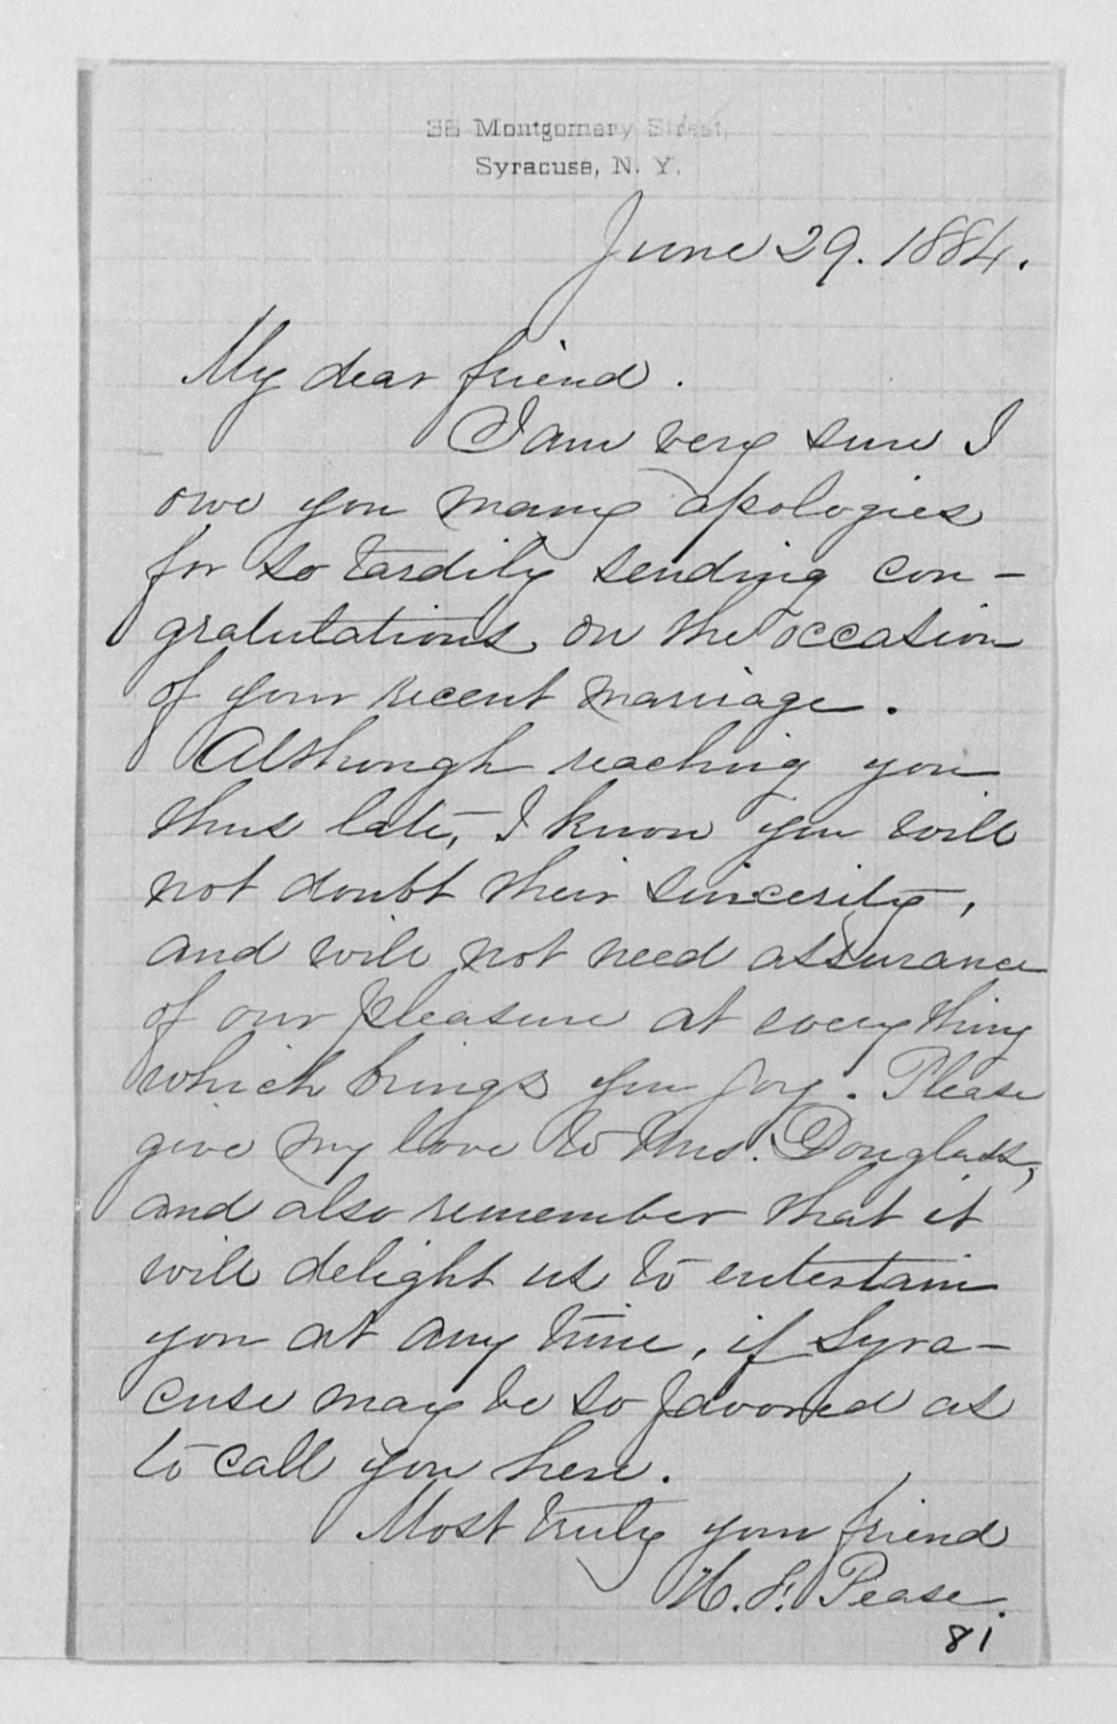 36 Montgomery Street,
Syracuse, N. Y.
June 29. 1884.
My dear friend.
I am very sure I
owe you many apologies
for so tardily sending con-
gratulations on the occasion
of your recent marriage.
Although reaching you
thus late, I know you will
not doubt their sincerity,
and will not need assurance
of our pleasure at everything
which brings you joy. Please
give my love to Mrs. Douglass,
and also remember that it
will delight us to entertain
you at any time, if Syra-
cuse may be so favored as
to call you here.
Most truly your friend
Pease.
81